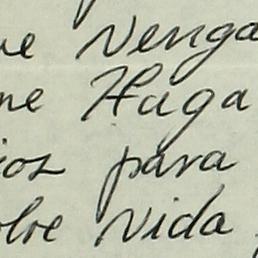 ue Venga
me Haga
ios para
olve vida